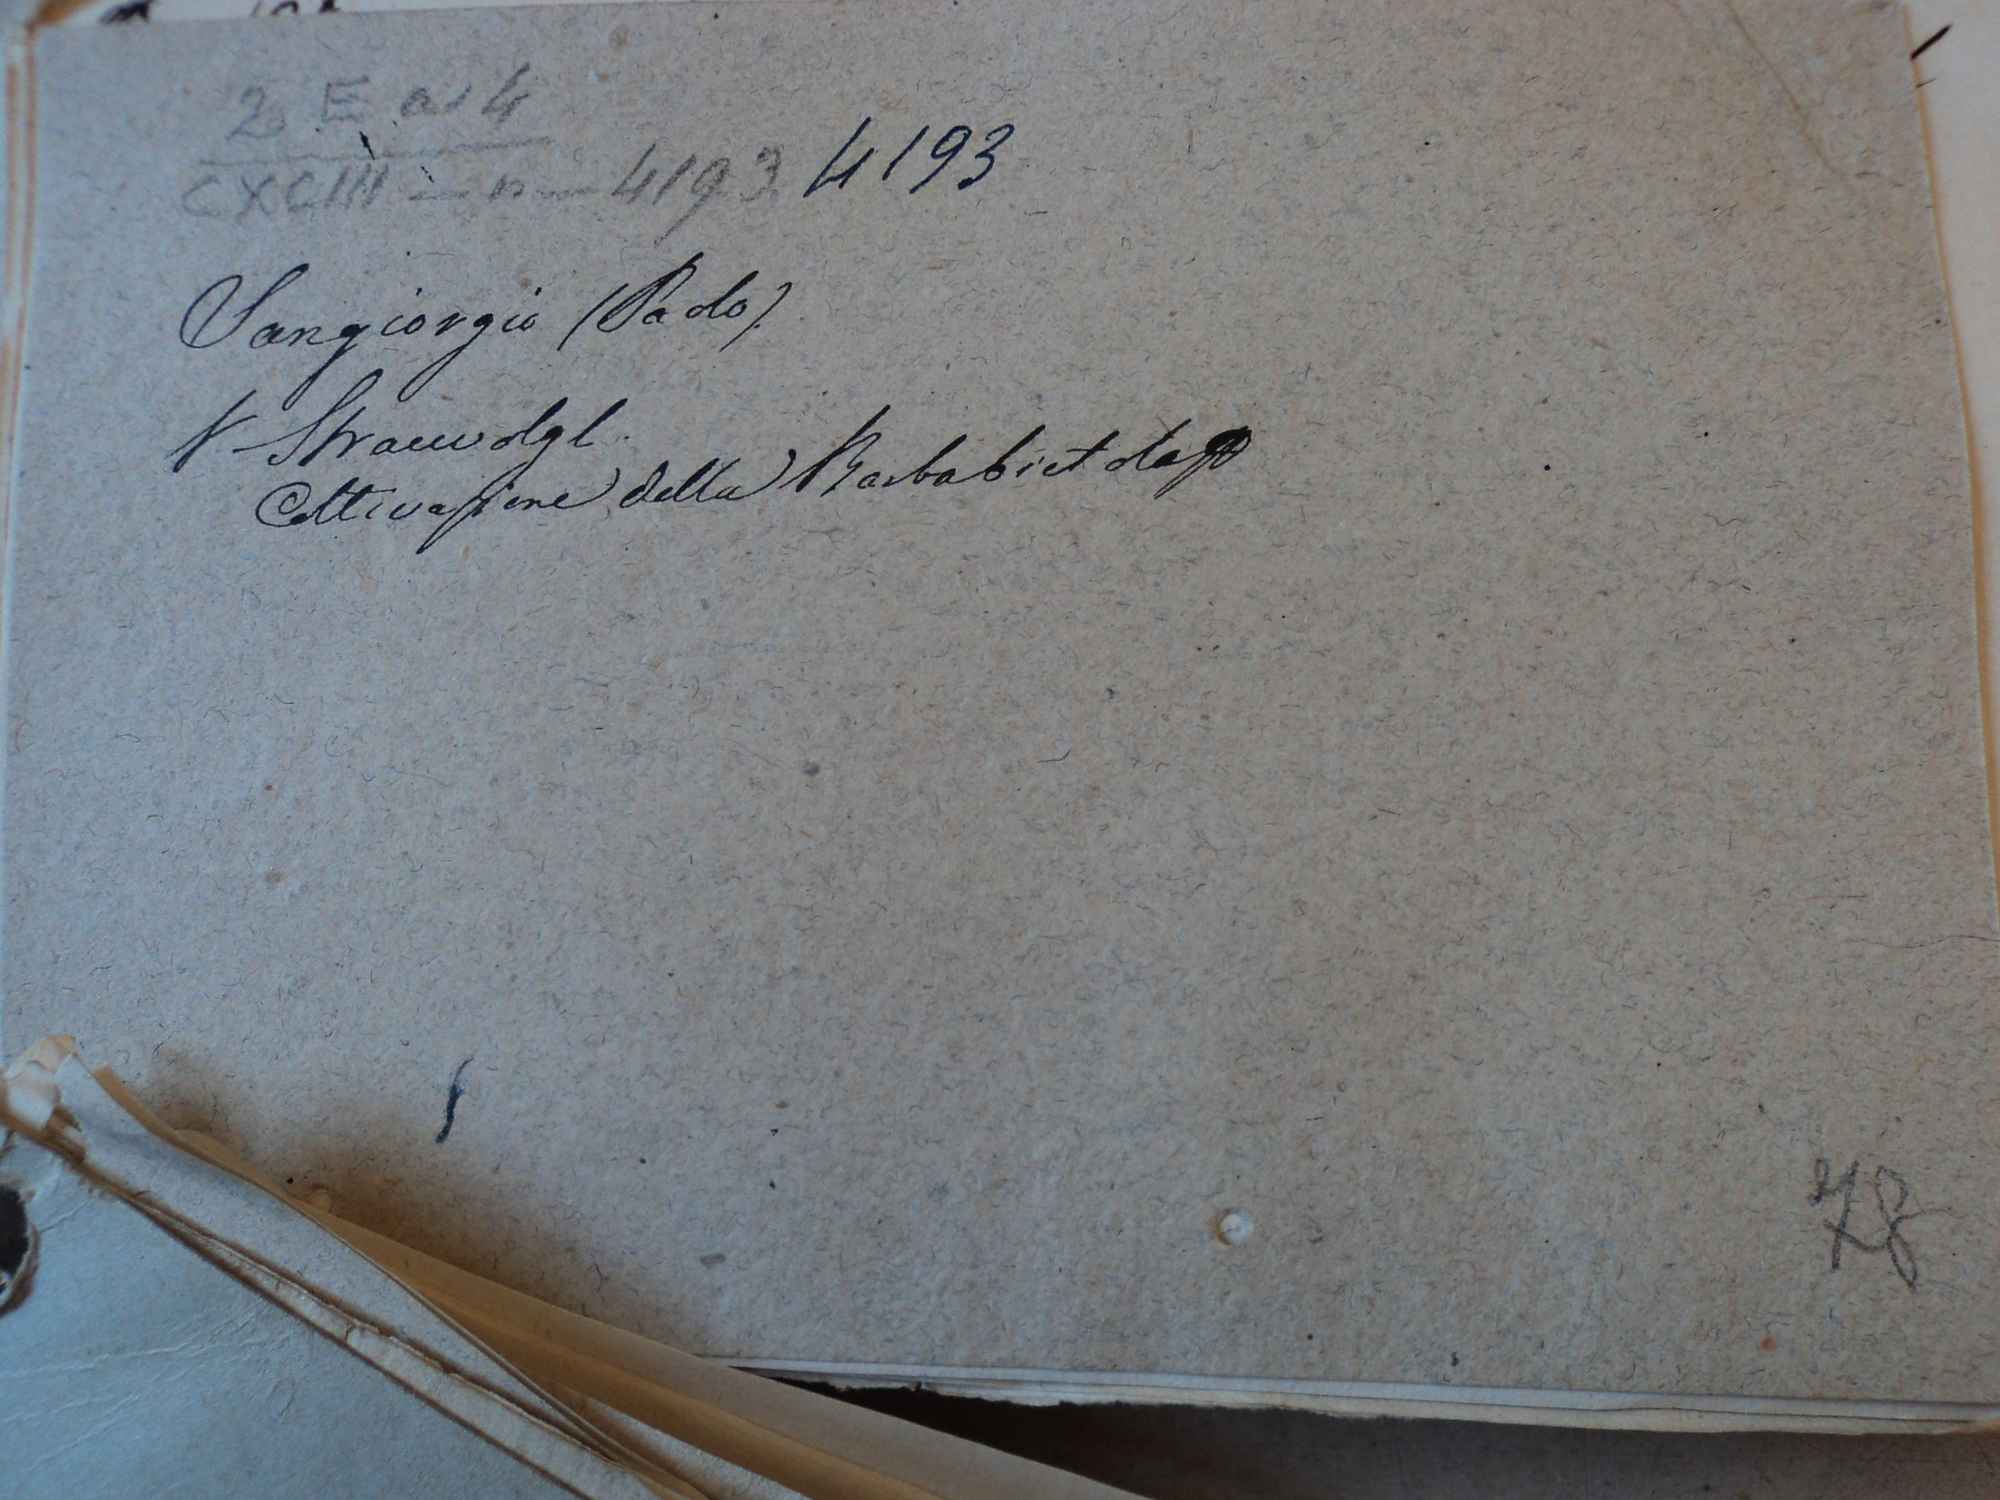 2 E a 4
CXCIII — n — 4193 4193
Sangiorgio (Paolo).
V. Strauwolgl.
Coltivazione della Barbabietola
78